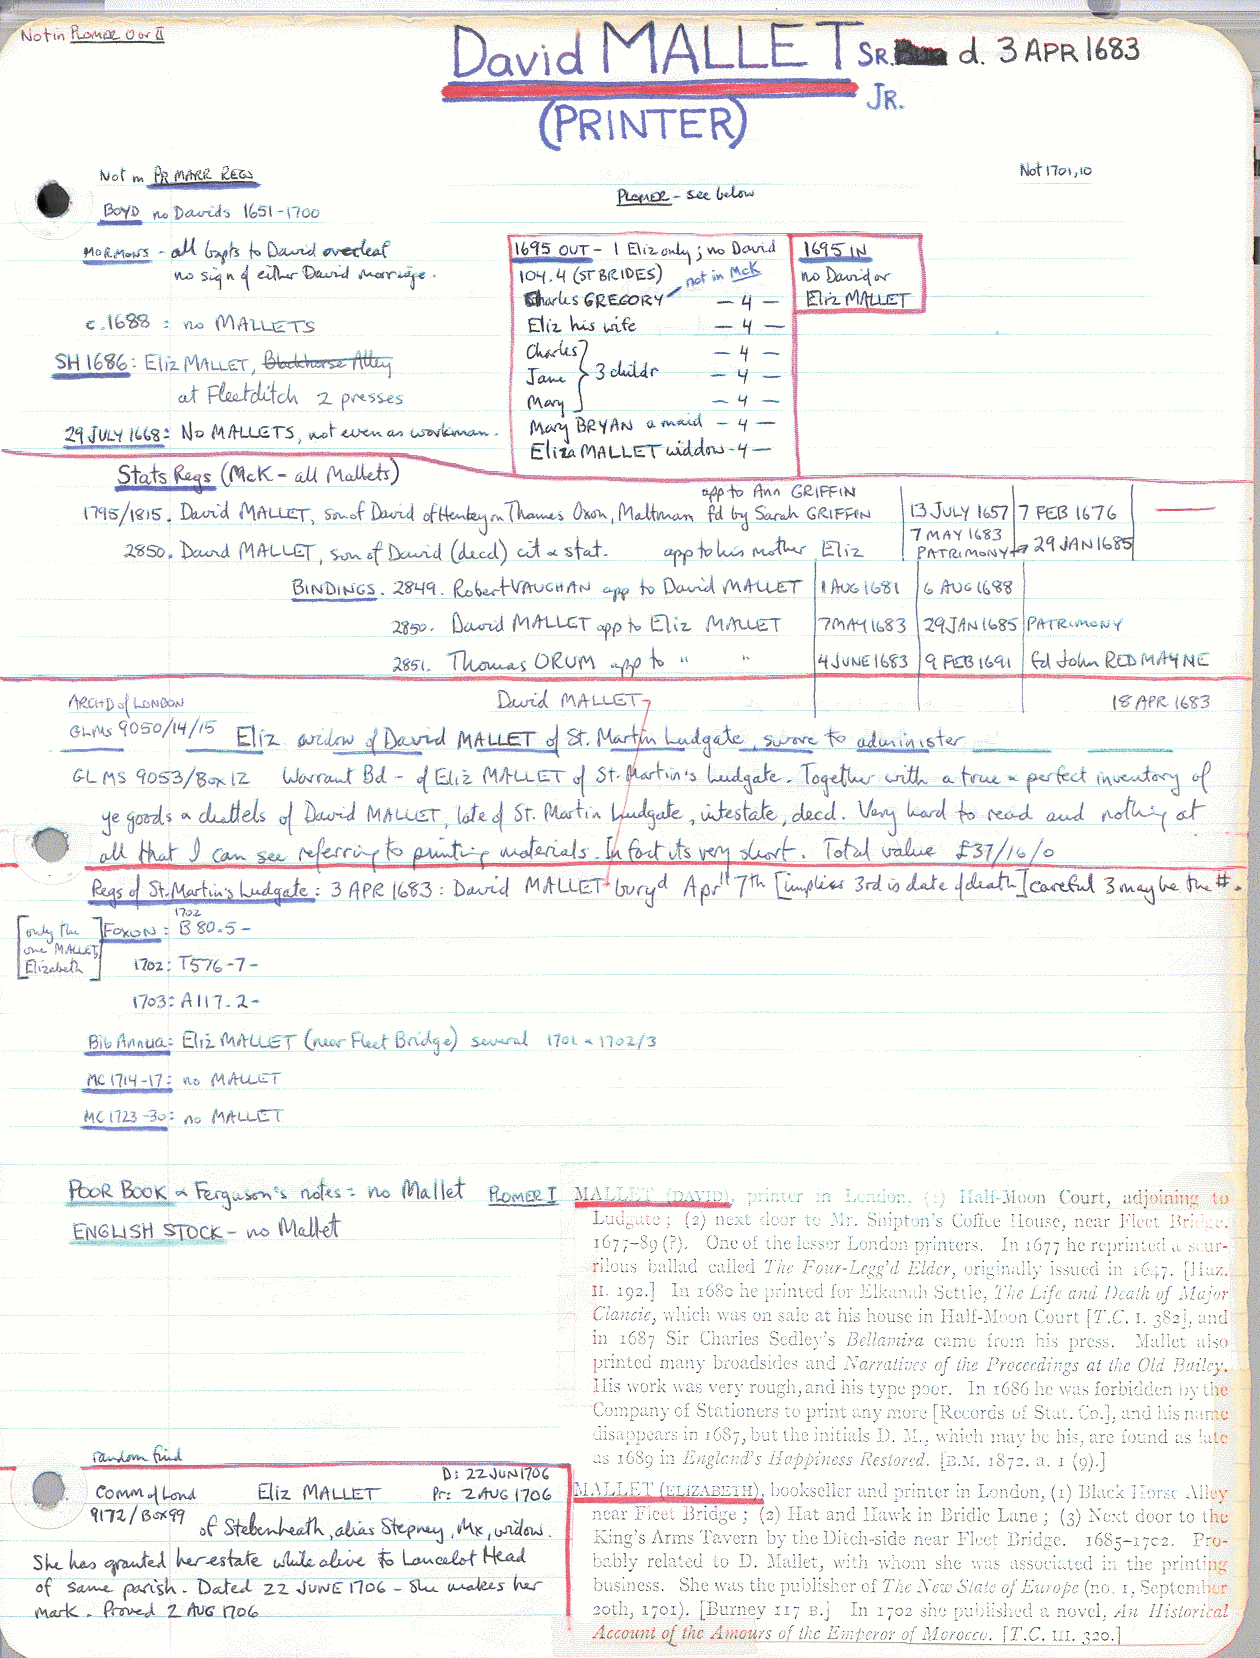 Not in PLOMER I or II
David MALLET SR. d. 3 APR 1683
JR.
(PRINTER)
Not in PR MARR REGS
Not 1701,10
PLOMER - see below
BOYD no Davids 1651-1700
MORMONS - all bapts to David overleaf
no sign of either David marriage.
c.1688 : no MALLETS
SH 1686: Eliz MALLET, Blackhorse Alley
at Fleetditch 2 presses
29 JULY 1668: No MALLETS, not even as workman.
1695 OUT - 1 Eliz only; no David
104.4 (ST BRIDES)
not in McK
Charles GREGORY - 4 -
Eliz his wife - 4 -
Charles - 4 -
Jane } 3 childr - 4 -
Mary - 4 -
Mary BRYAN a maid - 4 -
Eliza MALLET widdow - 4 -
1695 IN
no David or
Eliz MALLET
Stats Regs (McK - all Mallets)
app to Ann GRIFFIN
1795/1815. David MALLET, son of David of Henley on Thames Oxon, Maltman fd by Sarah GRIFFIN 13 JULY 1657 7 FEB 1676
7 MAY 1683
2850. David MALLET, son of David (decd) cit & stat. app to his mother Eliz PATRIMONY → 29 JAN 1685
BINDINGS. 2849. Robert VAUGHAN app to David MALLET 1 AUG 1681 6 AUG 1688
2850. David MALLET app to Eliz MALLET 7 MAY 1683 29 JAN 1685 PATRIMONY
2851. Thomas ORUM app to " " 4 JUNE 1683 9 FEB 1691 fd John REDMAYNE
ARCHD of LONDON David MALLET 18 APR 1683
GLMs 9050/14/15 Eliz widow of David MALLET of St. Martin Ludgate, swore to administer
GL MS 9053/Box 12 Warrant Bd - of Eliz MALLET of St. Martin's Ludgate. Together with a true & perfect inventory of
ye goods & chattels of David MALLET, late of St. Martin Ludgate, intestate, decd. Very hard to read and nothing at
all that I can see referring to printing materials. In fact its very short. Total value £37/16/0
Regs of St. Martin's Ludgate: 3 APR 1683: David MALLET buryd Apr 7th [implies 3rd is date of death] careful 3 may be the #.
[only the one MALLET, Elizabeth]
1702
FOXON: B 80.5 -
1702: T576-7-
1703: A117.2-
Bib Annua: Eliz MALLET (near Fleet Bridge) several 1701 & 1702/3
MC 1714-17: no MALLET
MC 1723-30: no MALLET
POOR BOOK & Ferguson's notes: no Mallet
ENGLISH STOCK - no Mallet
PLOMER I
MALLET (DAVID), printer in London, (1) Half-Moon Court, adjoining to
Ludgate; (2) next door to Mr. Shipton's Coffee House, near Fleet Bridge.
1677-89 (?). One of the lesser London printers. In 1677 he reprinted a scur-
rilous ballad called The Four-Legg'd Elder, originally issued in 1647. [Haz.
II. 192.] In 1680 he printed for Elkanah Settle, The Life and Death of Major
Clancie, which was on sale at his house in Half-Moon Court [T.C. I. 382], and
in 1687 Sir Charles Sedley's Bellamira came from his press. Mallet also
printed many broadsides and Narratives of the Proceedings at the Old Bailey.
His work was very rough, and his type poor. In 1686 he was forbidden by the
Company of Stationers to print any more [Records of Stat. Co.], and his name
disappears in 1687, but the initials D. M., which may be his, are found as late
as 1689 in England's Happiness Restored. [B.M. 1872. a. 1 (9).]
MALLET (ELIZABETH), bookseller and printer in London, (1) Black Horse Alley
near Fleet Bridge; (2) Hat and Hawk in Bridle Lane; (3) Next door to the
King's Arms Tavern by the Ditch-side near Fleet Bridge. 1685-1702. Pro-
bably related to D. Mallet, with whom she was associated in the printing
business. She was the publisher of The New State of Europe (no. 1, September
20th, 1701). [Burney 117 B.] In 1702 she published a novel, An Historical
Account of the Amours of the Emperor of Morocco. [T.C. III. 320.]
random find
D: 22 JUN 1706
Comm of Lond Eliz MALLET Pr: 2 AUG 1706
9172/Box 99
of Stebenheath, alias Stepney, Mx, widow.
She has granted her estate while alive to Lancelot Head
of same parish. Dated 22 JUNE 1706 - she makes her
mark. Proved 2 AUG 1706